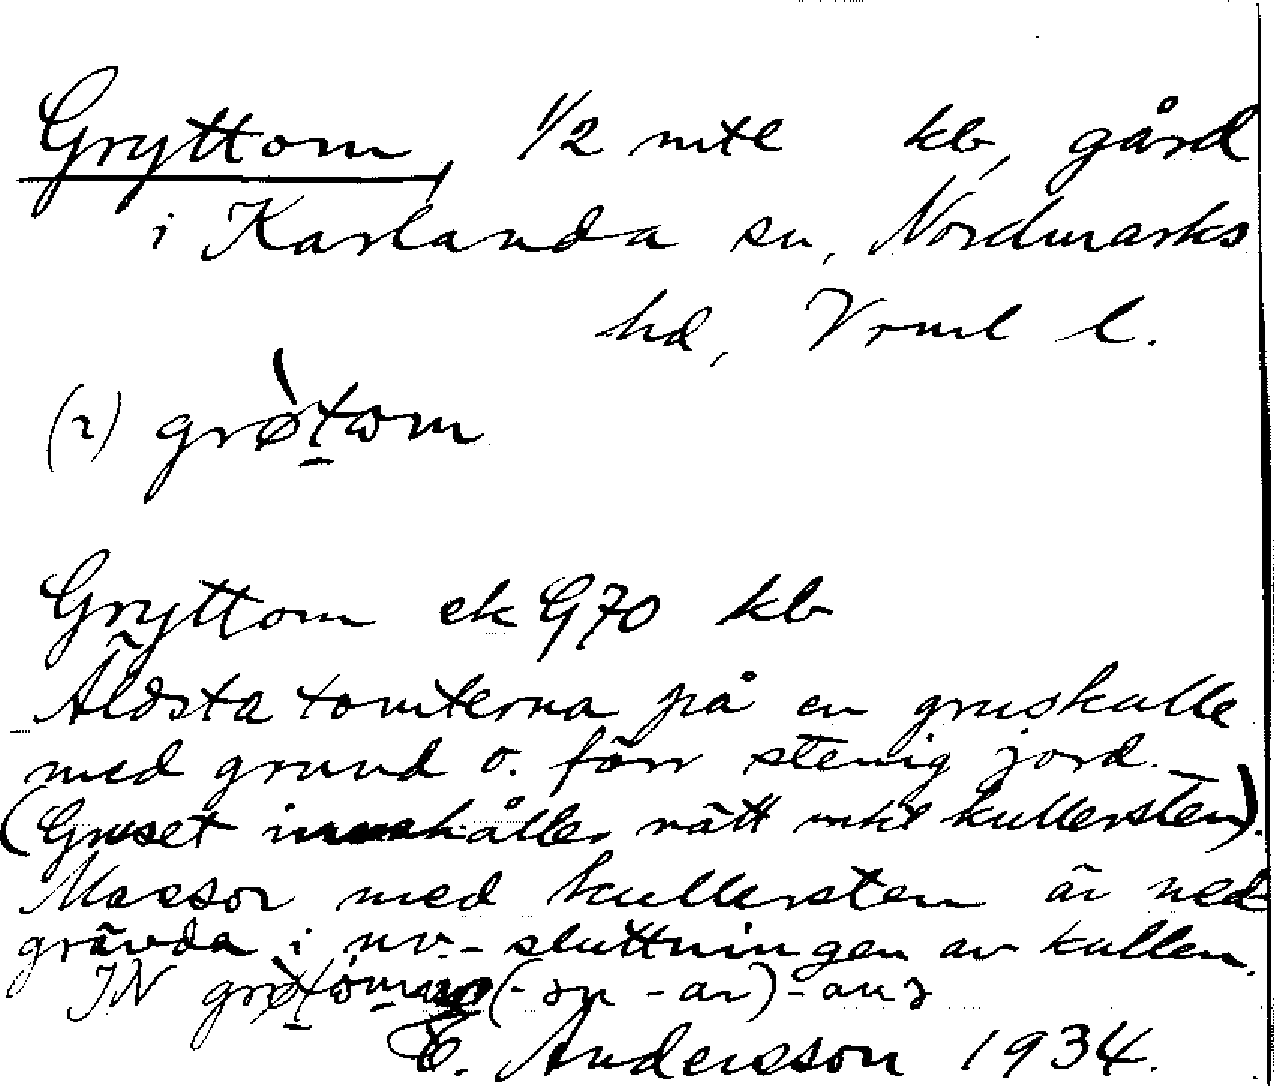 Gryttom, 1/2 mtl kb, gård
i Karlanda sn, Nordmarks
hd, Vrml l.
(2) grø̀tom
Gryttom ek G70 kb
Äldsta tomterna på en gruskulle
med grund o. förr stenig jord.
(Gruset innehåller rätt mkt kullersten).
Massor med kullersten är ned-
grävda i nv.-sluttningen av kullen.
IN
E. Andersson 1934.